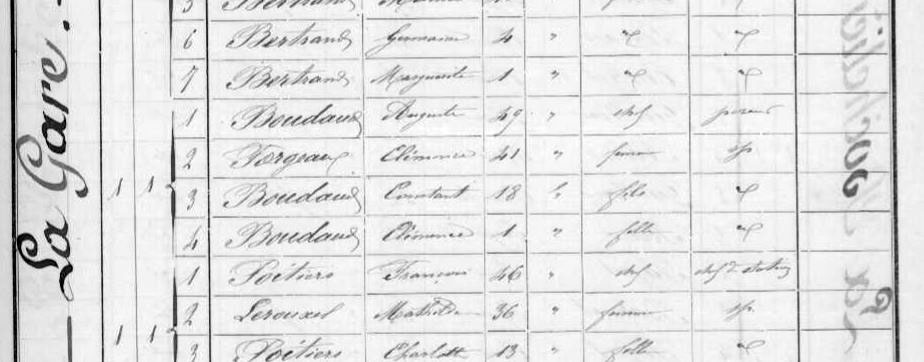 La Gare.
5 Bertrand
6 Bertrand Germaine 4 " d° d°
7 Bertrand Marguerite 1 " d° d°
1 Boudaud Auguste 49 " chef
2 Forgeau Clémence 41 " femme sp.
1 1
3 Boudaud Constant 18 " fils d°
4 Boudaud Clémence 1 " fille d°
1 Poitiers François 46 " chef chef de station
2 Lerouxel Mathilde 36 " femme sp.
1 1
3 Poitiers Charlotte 13 " fille d°